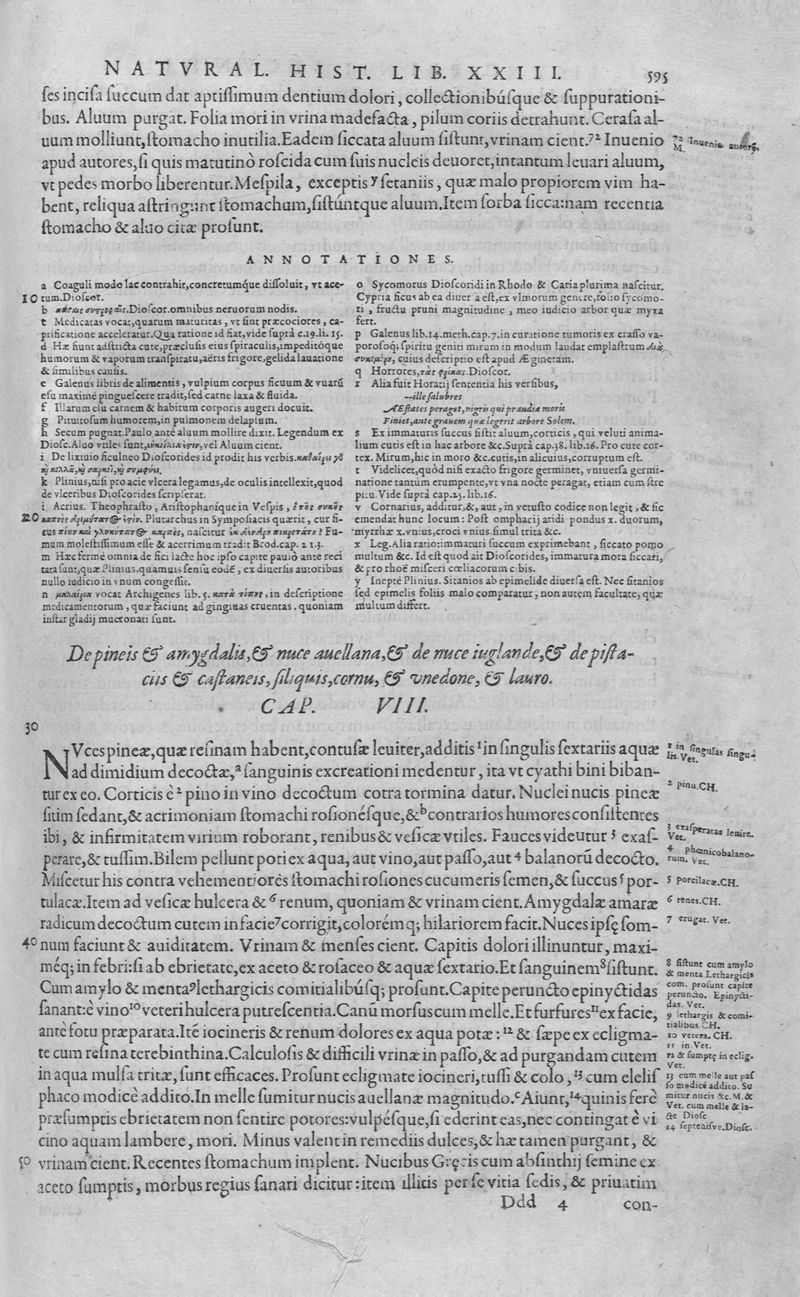 NATVRAL. HIST. LIB. XXIII. 595
ses incisa succum dat aptissimum dentium dolori, collectionibúsque & suppurationi-
bus. Aluum purgat. Folia mori in vrina madefacta, pilum coriis detrahunt. Cerasa al-
uum molliunt, stomacho inutilia. Eadem siccata aluum sistunt, vrinam cient.⁷² Inuenio
apud autores, si quis matutinò roscida cum suis nucleis deuoret, in tantum leuari aluum,
vt pedes morbo liberentur. Mespila, exceptis ʸ setaniis, quæ malo propiorem vim ha-
bent, reliqua astringunt stomachum, sistúntque aluum. Item sorba sicca: nam recentia
stomacho & aluo citæ prosunt.
72 Inuenio autores.
M.
ANNOTATIONES.
a Coaguli modo lac contrahit, concretumq́ue dissoluit, vt ace-
10 tum. Dioscor.
b Dioscor. omnibus neruorum nodis.
c Medicatas vocat, quarum maturitas, vt sint præcociores, ca-
prificatione acceleratur. Qua ratione id fiat, vide suprà c.19. li. 15.
d Hæ sunt adstricta cute, præclusis eius spiraculis, impeditóque
humorum & vaporum transpiratu, aëris frigore, gelida lauatione
& similibus causis.
e Galenus libris de alimentis, vulpium corpus ficuum & vuarū
esu maximè pinguescere tradit, sed carne laxa & fluida.
f Illarum esu carnem & habitum corporis augeri docuit.
g Pituitosum humorem, in pulmonem delapsum.
h Secum pugnat. Paulo antè aluum mollire dixit. Legendum ex
Diosc. Aluo vtiles sunt, vel Aluum cient.
i De lixiuio ficulneo Dioscorides id prodit his verbis.
k Plinius, nisi pro acie vlcera legamus, de oculis intellexit, quod
de vlceribus Dioscorides scripserat.
l Acrius. Theophrasto, Aristophaníque in Vespis,
20 Plutarchus in Symposiacis quærit, cur fi-
cus nascitur Fu-
mum molestissimum esse & acerrimum tradit Brod. cap. 213.
m Hæc fermè omnia de fici lacte hoc ipso capite paulò ante reci
tata sunt, quæ Plinius, quamuis sensu eodē, ex diuersis autoribus
nullo iudicio in vnum congessit.
n vocat Archigenes lib. 5. in descriptione
medicamentorum, quæ faciunt ad gingiuas cruentas. quoniam
instar gladij mucronati sunt.
o Sycomorus Dioscoridi in Rhodo & Caria plurima nascitur.
Cypria ficus ab ea diuersa est, ex vlmorum genere, folio sycomo-
ri, fructu pruni magnitudine, meo iudicio arbor quæ myxa
fert.
p Galenus lib. 14. meth. cap. 7. in curatione tumoris ex crasso va-
porosoq́; spiritu geniti mirum in modum laudat emplastrum
cuius descriptio est apud Æginetam.
q Horrores, τὰς φρίκας. Dioscor.
r Alia fuit Horatij sententia his versibus,
—ille salubres
Æstates peraget, nigris qui prandia moris
Finiet, ante grauem quæ legerit arbore Solem.
s Ex immaturis succus sistit aluum, corticis, qui veluti anima-
lium cutis est in hac arbore &c. Suprà cap. 38. lib. 16. Pro cute cor-
tex. Mirum, hic in moro &c. cutis, in alicuius, corruptum est.
t Videlicet, quòd nisi exacto frigore germinet, vniuersa germi-
natione tantùm erumpente, vt vna nocte peragat, etiam cum stre
pitu. Vide suprà cap. 25. lib. 16.
v Cornarius, additur, &, aut, in vetusto codice non legit, & sic
emendat hunc locum: Post omphacij aridi pondus x. duorum,
myrrhæ x. vnius, croci vnius. simul trita &c.
x Leg. Alia ratio: immaturi succum exprimebant, siccato pomo
multum &c. Id est quod ait Dioscorides, immatura mora siccari,
& pro rhoë misceri cœliacorum cibis.
y Ineptè Plinius. Sitanios ab epimelide diuersa est. Nec sitanios
sed epimelis foliis malo comparatur, non autem facultate, quæ
multum differt.
De pineis & amygdalis, & nuce auellana, & de nuce iuglande, & de pista-
ciis & castaneis, siliquis, cornu, & vnedone, & lauro.
CAP. VIII.
30
NVces pineæ, quæ resinam habent, contusæ leuiter, additis ¹ in singulis sextariis aquæ
ad dimidium decoctæ, ᵃ sanguinis excreationi medentur, ita vt cyathi bini biban-
tur ex eo. Corticis è ² pino in vino decoctum contra tormina datur. Nuclei nucis pineæ
sitim sedant, & acrimoniam stomachi rosionésque, & ᵇ contrarios humores consistentes
ibi, & infirmitatem virium roborant, renibus & vesicæ vtiles. Fauces videutur ³ exas-
perare, & tussim. Bilem pellunt poti ex aqua, aut vino, aut passo, aut ⁴ balanorū decocto.
Miscetur his contra vehementiores stomachi rosiones cucumeris semen, & succus ⁵ por-
tulacæ. Item ad vesicæ hulcera & ⁶ renum, quoniam & vrinam cient. Amygdalæ amaræ
radicum decoctum cutem in facie ⁷ corrigit, colorémq; hilariorem facit. Nuces ipsę som-
40 num faciunt & auiditatem. Vrinam & menses cient. Capitis dolori illinuntur, maxi-
méq; in febri: si ab ebrietate, ex aceto & rosaceo & aquæ sextario. Et sanguinem ⁸ sistunt.
Cum amylo & menta ⁹ lethargicis comitialibúsq; prosunt. Capite peruncto epinyctidas
sanant: è vino ¹⁰ veteri hulcera putrescentia. Canū morsus cum melle. Et furfures ¹¹ ex facie,
antè fotu præparata. Itē iocineris & renum dolores ex aqua potæ: ¹² & sæpe ex ecligma-
te cum resina terebinthina. Calculosis & difficili vrinæ in passo, & ad purgandam cutem
in aqua mulsa tritæ, sunt efficaces. Prosunt ecligmate iocineri, tussi & colo, ¹³ cum elelis
phaco modicè addito. In melle sumitur nucis auellanæ magnitudo. ᶜ Aiunt, ¹⁴ quinis ferè
præsumptis ebrietatem non sentire potores: vulpésque, si ederint eas, nec contingat è vi
cino aquam lambere, mori. Minus valent in remediis dulces, & hæ tamen purgant, &
50 vrinam cient. Recentes stomachum implent. Nucibus Gręcis cum absinthij semine ex
aceto sumptis, morbus regius sanari dicitur: item illitis per se vitia sedis, & priuatim
Ddd 4 con-
1 in singulas singu-
lis. Vet.
2 pinu. CH.
3 exasperatas lenire.
Vet.
4 phœnicobalano-
rum. Vet.
5 porcilacæ. CH.
6 renes. CH.
7 erugat. Vet.
8 sistunt cum amylo
& menta Lethargicis
com. prosunt capite
peruncto. Epinycti-
das. Vet.
9 lethargis & comi-
tialibus. CH.
10 vetera. CH.
11 in Vet.
12 & sumptę in eclig.
Vet.
13 cum melle aut pas
so modicè addito. Su
mitur nucis &c. M. &
Vet. cum melle & la-
cte Diosc
14 septenisve. Diosc.